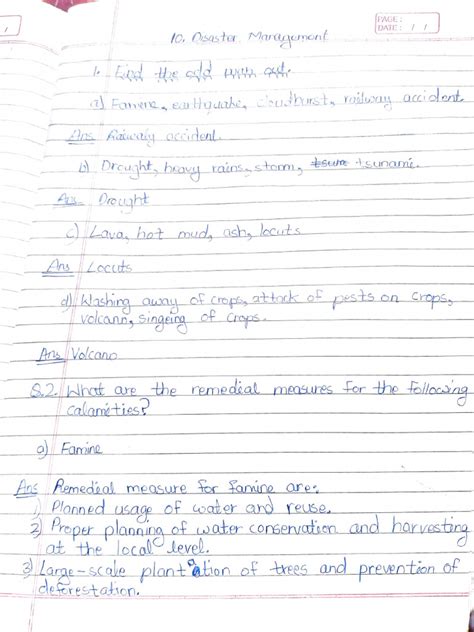 PAGE:
DATE: / /
10. Disaster Management
1. Find the odd man out.
a) Famine, earthquake, cloudburst, railway accident
Ans Railway accident.
b) Drought, heavy rains, storm, tsunami.
Ans Drought
c) Lava, hot mud, ash, locuts
Ans Locuts
d) Washing away of crops, attack of pests on crops,
volcano, singeing of crops.
Ans Volcano
Q.2. What are the remedial measures for the following
calamities?
a) Famine
Ans Remedial measure for famine are:
1) Planned usage of water and reuse.
2) Proper planning of water conservation and harvesting
at the local level.
3) Large-scale plantation of trees and prevention of
deforestation.